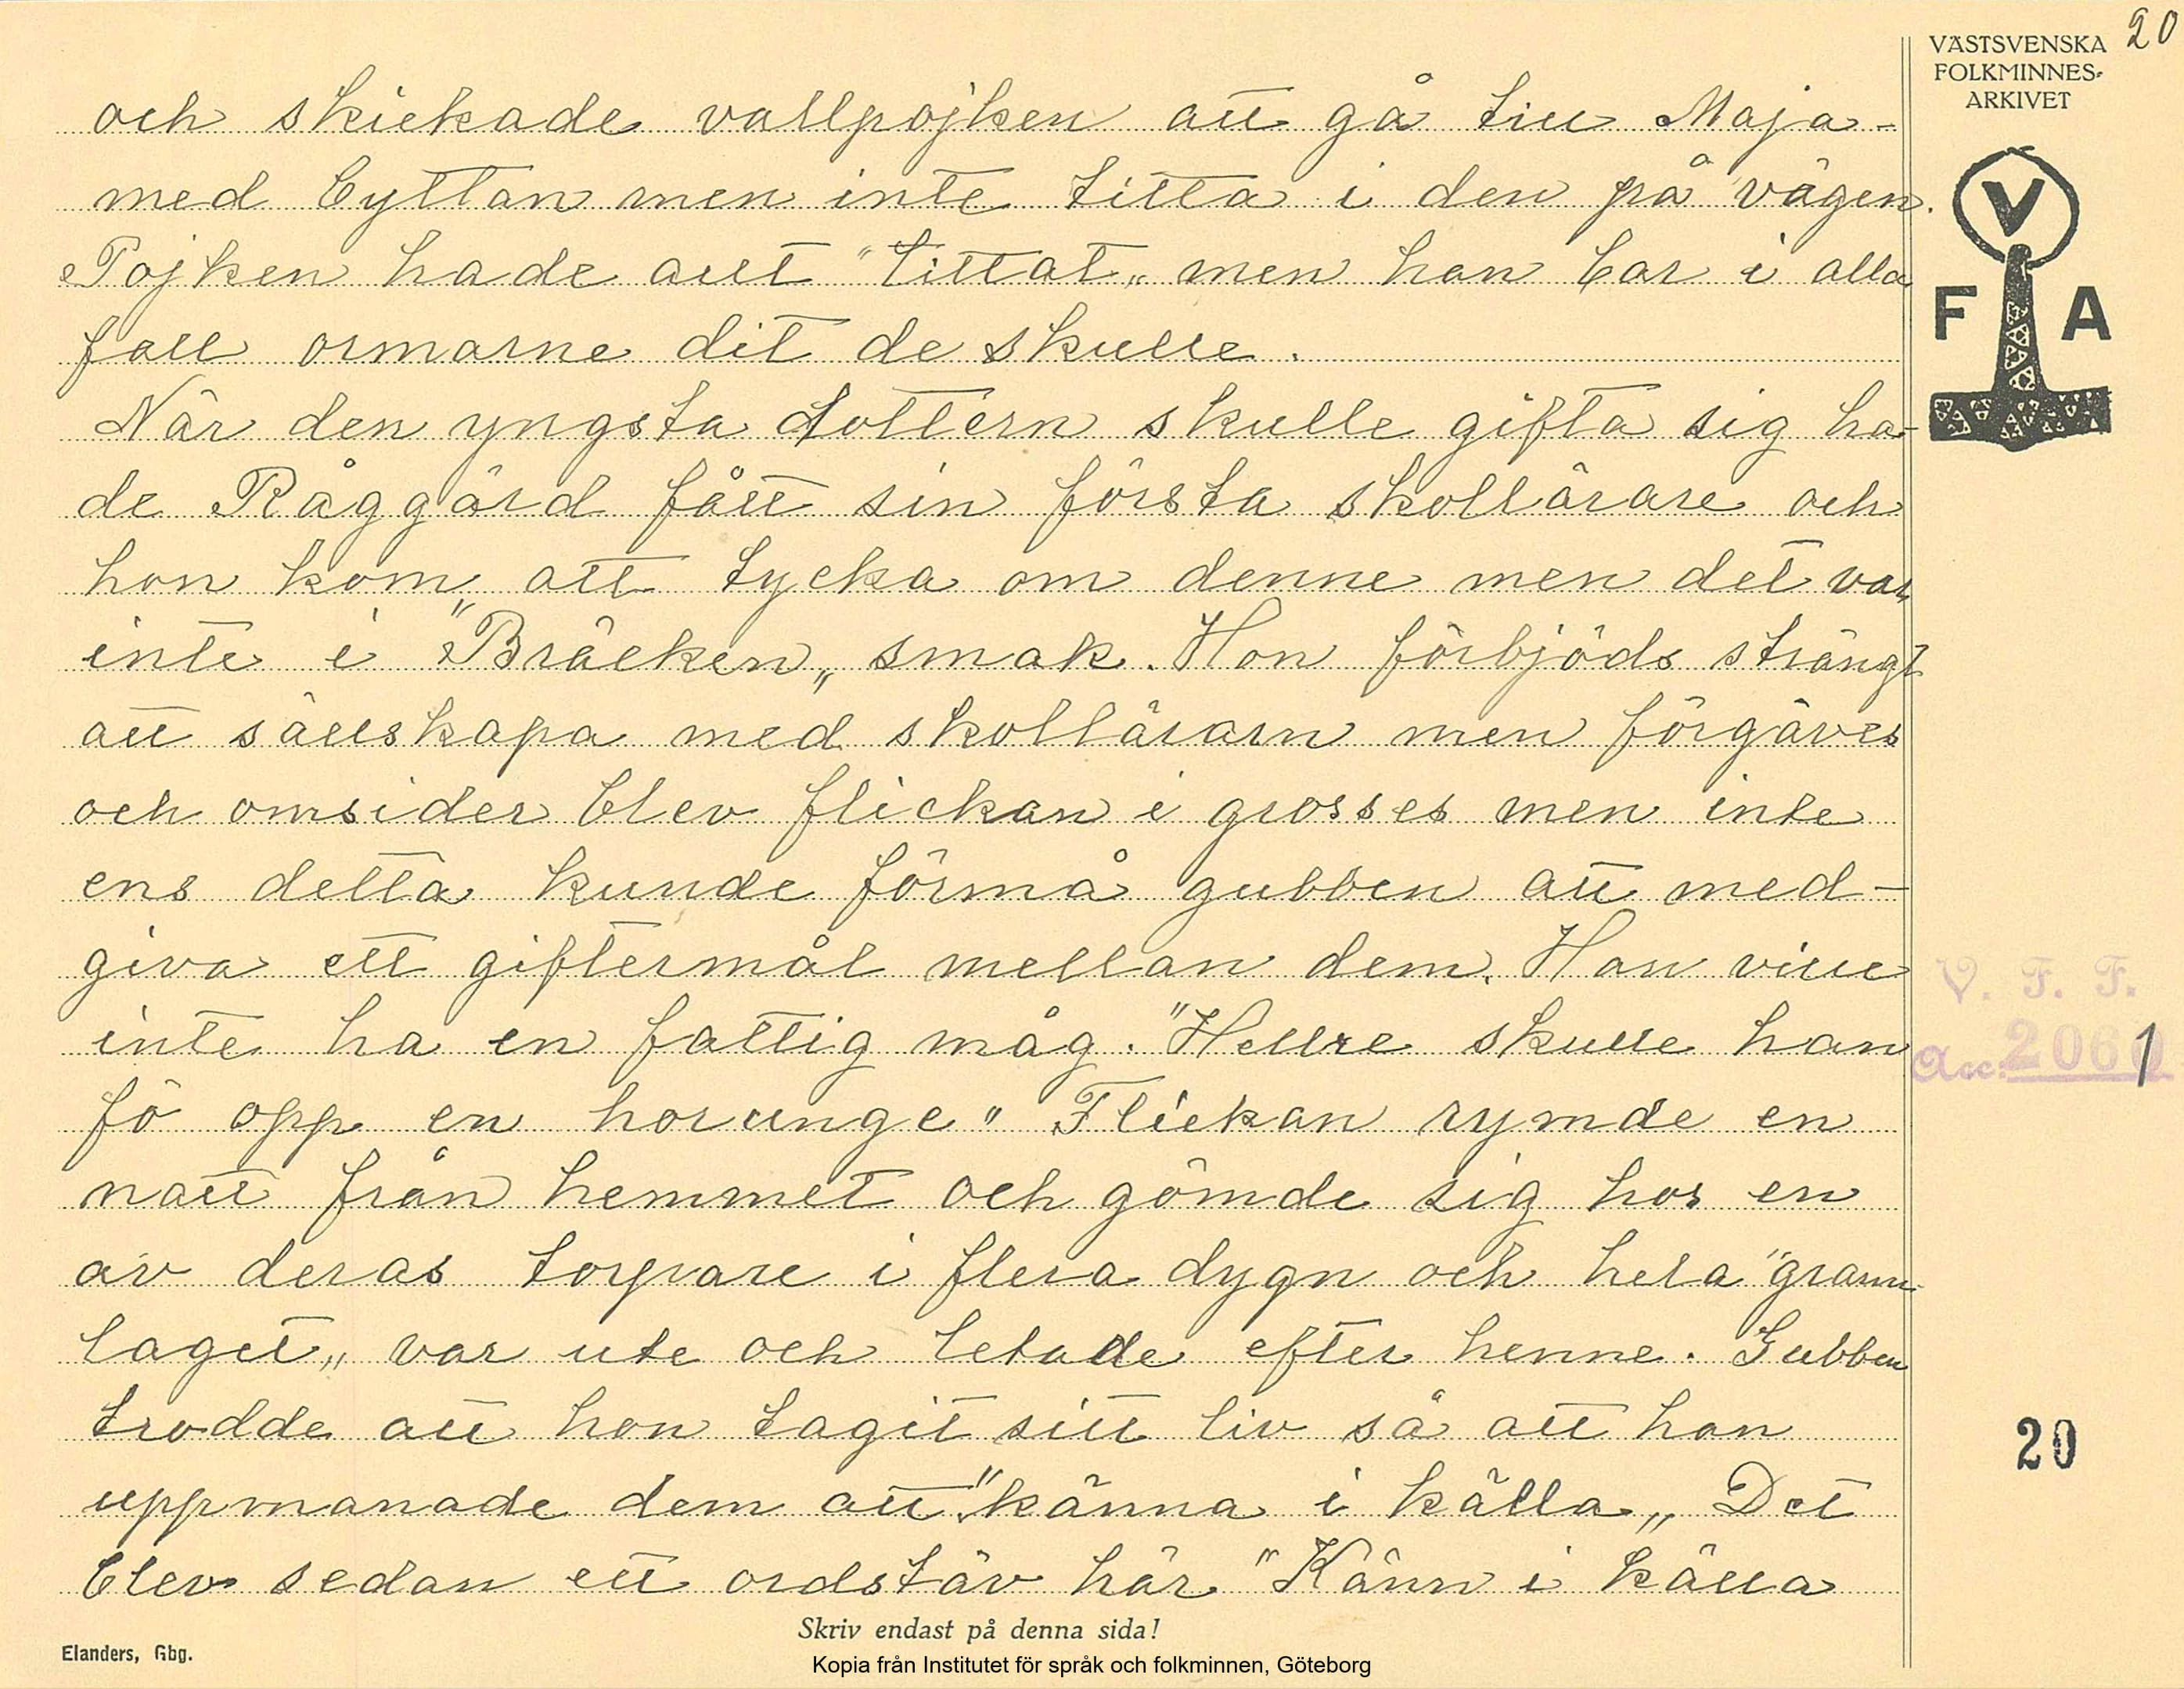 20
VÄSTSVENSKA
FOLKMINNES-
ARKIVET
V
F A
och skickade vallpojken att gå till Maja
med byttan men inte titta i den på vägen.
Pojken hade allt "tittat„ men han bar i alla
fall ormarne dit de skulle.
När den yngsta dottern skulle gifta sig ha-
de Råggärd fått sin första skollärare och
hon kom att tycka om denne men det var
inte i "Bräcken„ smak. Hon förbjöds strängt
att sällskapa med skollärarn men förgäves
och omsider blev flickan i grosses men inte
ens detta kunde förmå gubben att med-
giva ett giftermål mellan dem. Han ville
inte ha en fattig måg. "Hellre skulle han
fö opp en horunge" Flickan rymde en
natt från hemmet och gömde sig hos en
av deras torpare i flera dygn och hela "grann-
laget„ var ute och letade efter henne. Gubben
trodde att hon tagit sitt liv så att han
uppmanade dem att "känna i källa„ Det
blev sedan ett ordstäv här "Känn i källa
V. F. F.
Acc. 2061
20
Skriv endast på denna sida!
Elanders, Gbg.
Kopia från Institutet för språk och folkminnen, Göteborg